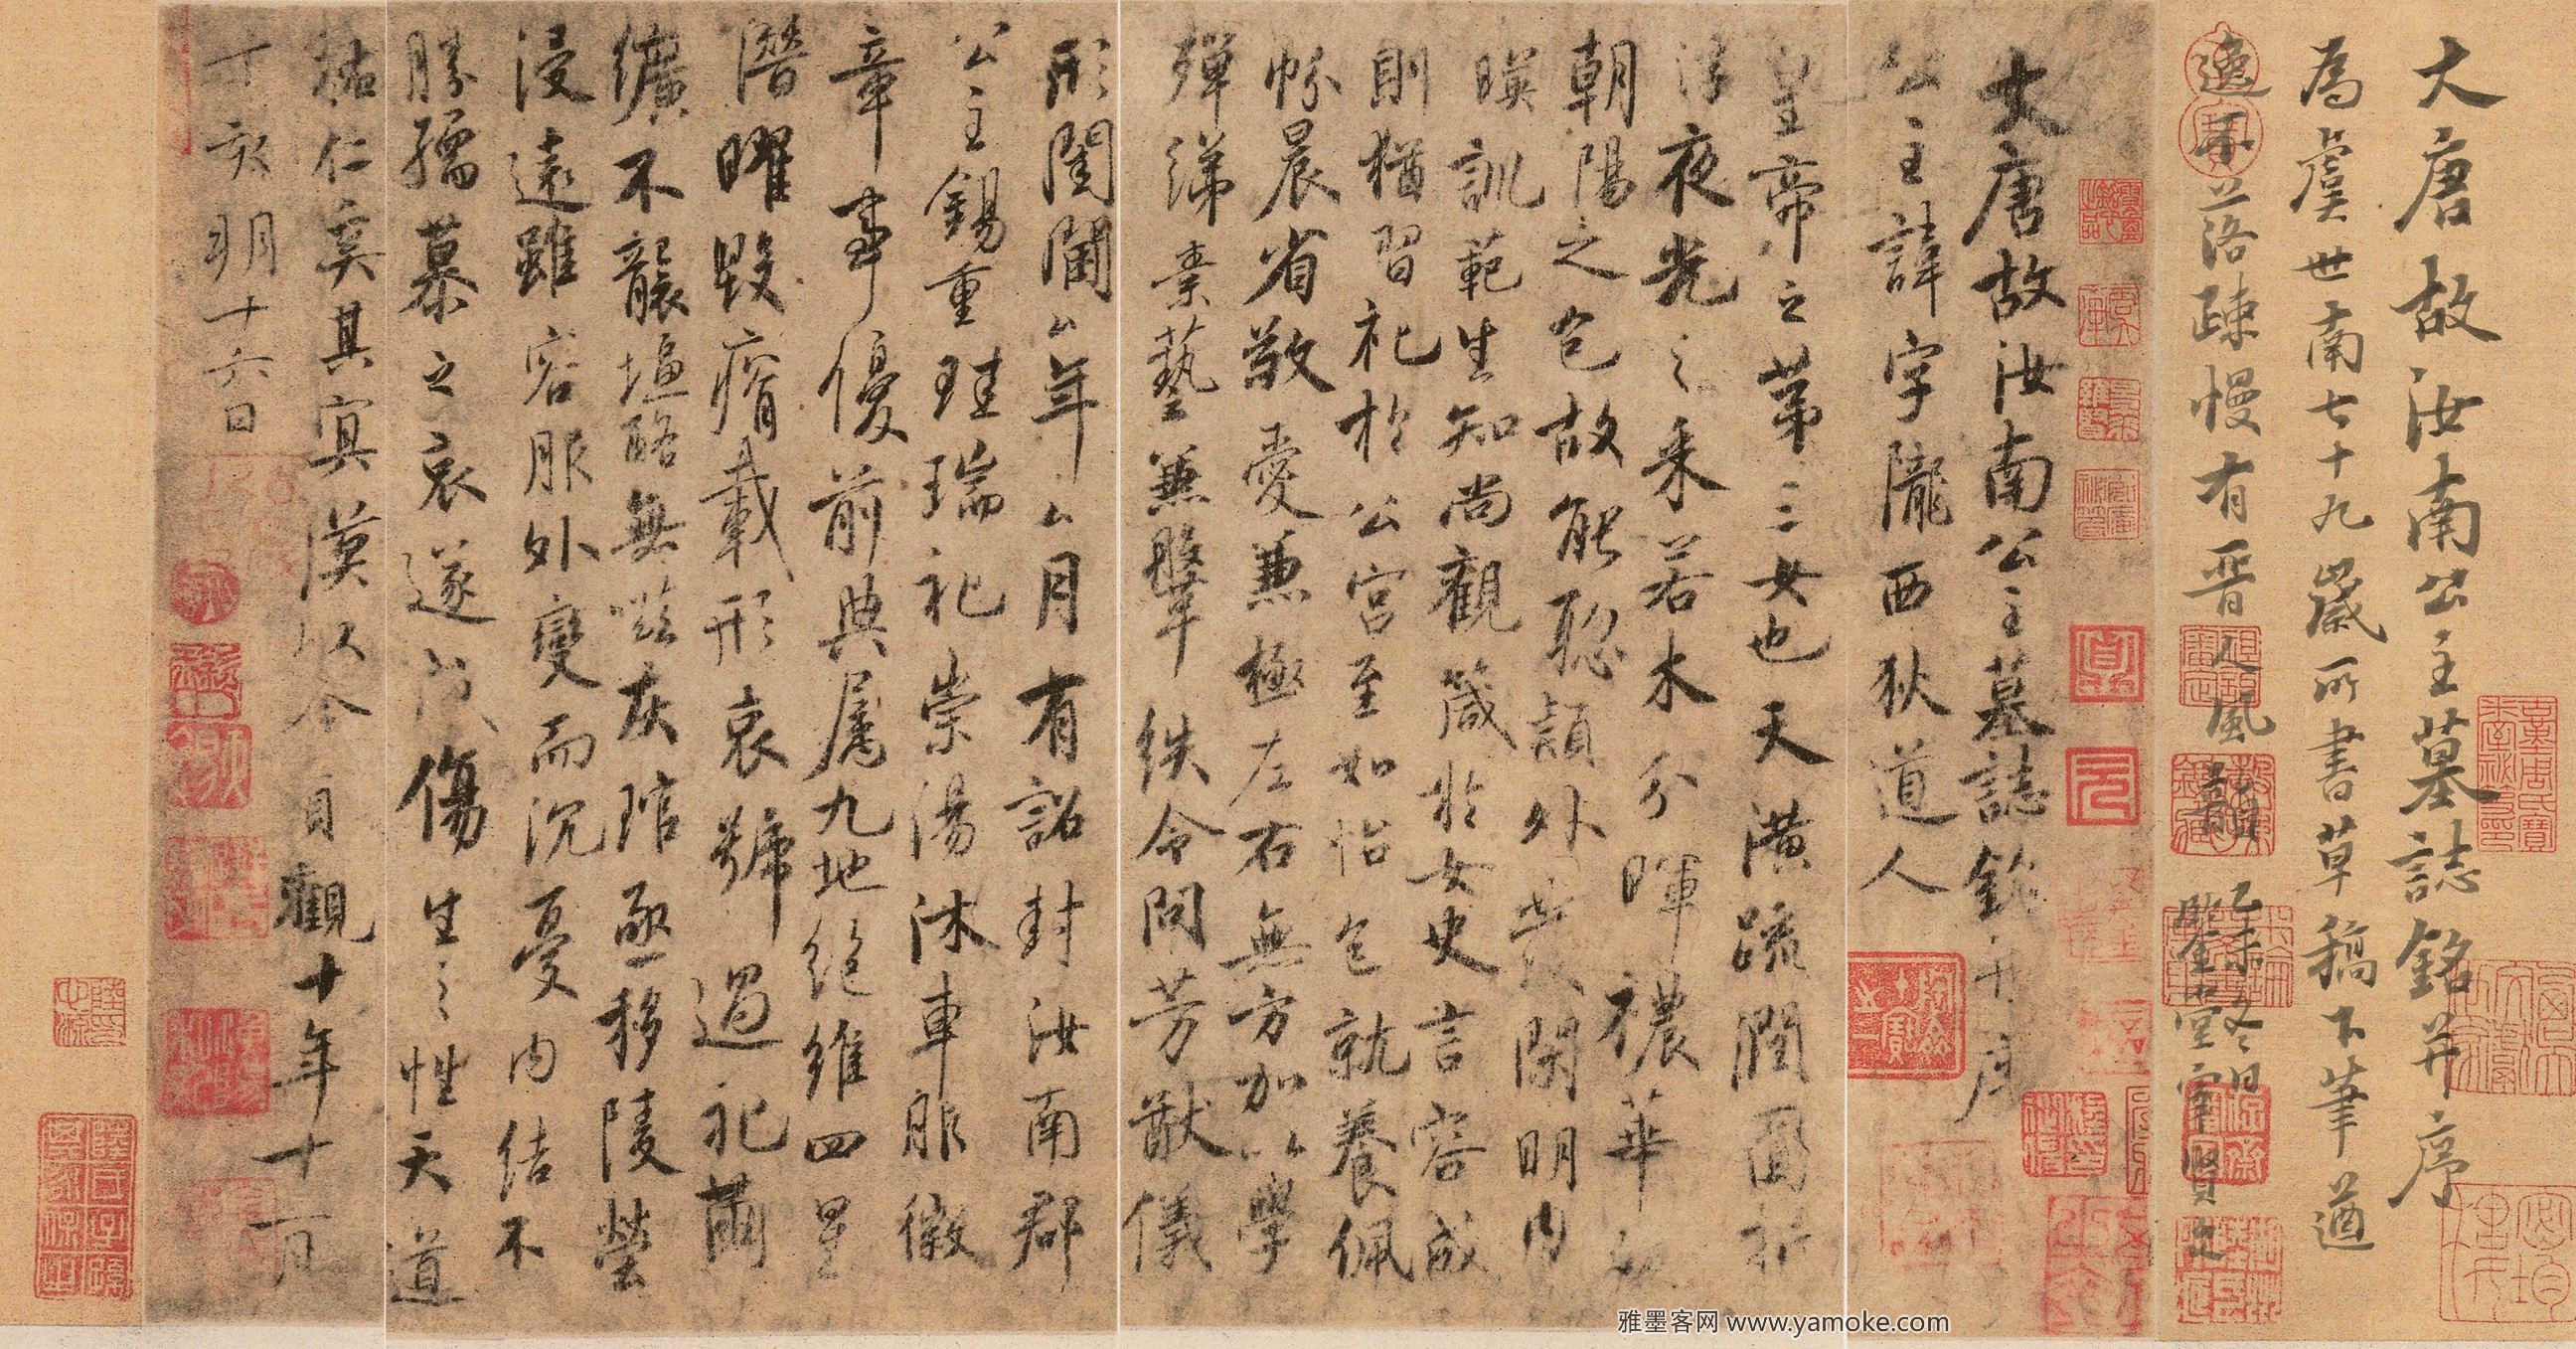 大唐故汝南公主墓誌銘并序
為虞世南七十九歲所書草稿下筆遒
逸不落疎慢有晉人風韻
乙未冬日
大唐故汝南公主墓誌銘并序
公主諱字隴西狄道人
皇帝之第三女也天潢疏潤圓折
浮夜光之采若木分暉穠華
朝陽之色故能聰穎外發閑明內
暎訓範生知尚觀箴於女史言容成
則猶習礼於公宮至如怡色就養佩
帉晨省敬愛兼極左右無方加以學
殫綈素藝兼鞶紩令問芳猷儀
形閨閫厶年厶月有詔封汝南郡
公主錫重珪瑞礼崇湯沐車服徽
章事優前典屬九地絕維四星
潛曜毀瘠載形哀號過礼繭
纊不襲塩酪無嗞灰琯亟移陵塋
浸遠雖容服外變而沉憂內結不
勝孺慕之哀遂成傷生之性天道
祐仁奚其冥漠以今貞觀十年十一月
丁亥朔十六日
雅墨客网 www.yamoke.com